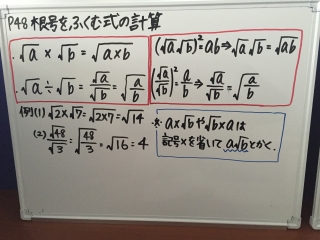 P48 根号をふくむ式の計算
・√a × √b = √(a×b)
・√a ÷ √b = √a/√b = √(a/b)
(√a√b)² = ab ⇒ √a√b = √ab
(√a/√b)² = a/b ⇒ √a/√b = √(a/b)
例(1) √2×√7 = √2×7 = √14
(2) √48/√3 = √(48/3) = √16 = 4
※ a×√b や √b×a は
記号×を省いて a√b とかく.